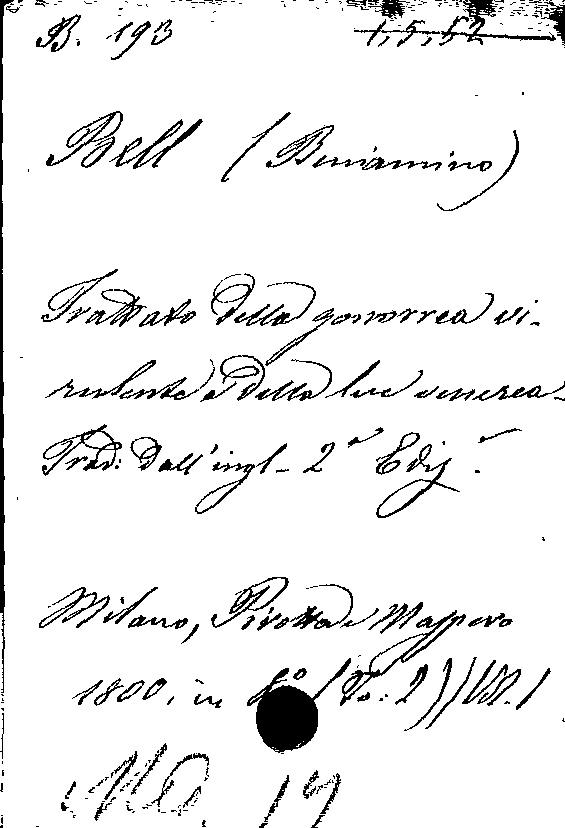 B. 193 1,5,52
Bell (Beniamino)
Trattato della gonorrea vi-
rulenta e della lue venerea-
Trad: dall'ingl- 2ª Ediz.
Milano, Pirotta e Maspero
1800, in 8º (To: 2)